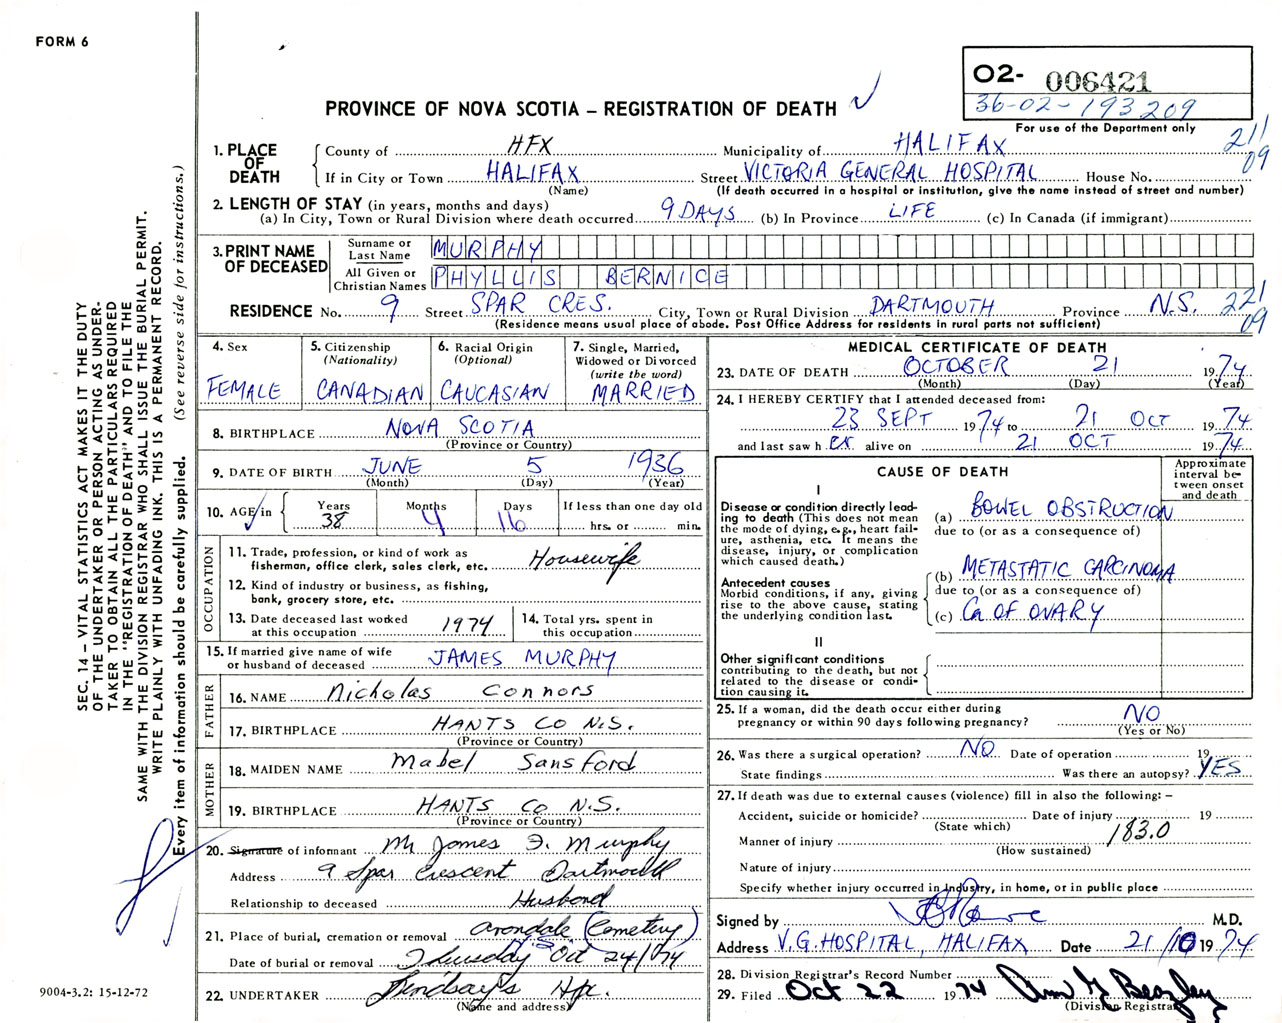 FORM 6
O2- 006421
36-02-193209
For use of the Department only
PROVINCE OF NOVA SCOTIA – REGISTRATION OF DEATH
211
09
1. PLACE OF DEATH
County of HFX Municipality of HALIFAX
If in City or Town HALIFAX Street VICTORIA GENERAL HOSPITAL House No.
(Name) (If death occurred in a hospital or institution, give the name instead of street and number)
2. LENGTH OF STAY (in years, months and days)
(a) In City, Town or Rural Division where death occurred 9 DAYS (b) In Province LIFE (c) In Canada (if immigrant)
3. PRINT NAME OF DECEASED
Surname or Last Name MURPHY
All Given or Christian Names PHYLLIS BERNICE
RESIDENCE No. 9 Street SPAR CRES. City, Town or Rural Division DARTMOUTH Province N.S.
221
09
(Residence means usual place of abode. Post Office Address for residents in rural parts not sufficient)
4. Sex
FEMALE
5. Citizenship
(Nationality)
CANADIAN
6. Racial Origin
(Optional)
CAUCASIAN
7. Single, Married,
Widowed or Divorced
(write the word)
MARRIED
8. BIRTHPLACE NOVA SCOTIA
(Province or Country)
9. DATE OF BIRTH JUNE 5 1936
(Month) (Day) (Year)
10. AGE in Years 38 Months 4 Days 16 If less than one day old
hrs. or min.
OCCUPATION
11. Trade, profession, or kind of work as
fisherman, office clerk, sales clerk, etc. Housewife
12. Kind of industry or business, as fishing,
bank, grocery store, etc.
13. Date deceased last worked
at this occupation 1974
14. Total yrs. spent in
this occupation
15. If married give name of wife
or husband of deceased JAMES MURPHY
FATHER
16. NAME Nicholas Connors
17. BIRTHPLACE HANTS CO N.S.
(Province or Country)
MOTHER
18. MAIDEN NAME Mabel Sansford
19. BIRTHPLACE HANTS CO N.S.
(Province or Country)
20. Signature of informant Mr James F. Murphy
Address 9 Spar Crescent Dartmouth
Relationship to deceased Husband
21. Place of burial, cremation or removal Avondale (Cemetery)
N.S.
Date of burial or removal Thursday Oct 24/74
22. UNDERTAKER Lindsay's Hfx.
(Name and address)
MEDICAL CERTIFICATE OF DEATH
23. DATE OF DEATH OCTOBER 21 1974
(Month) (Day) (Year)
24. I HEREBY CERTIFY that I attended deceased from:
23 SEPT 1974 to 21 OCT 1974
and last saw h er alive on 21 OCT 1974
CAUSE OF DEATH
Approximate
interval be-
tween onset
and death
I
Disease or condition directly lead-
ing to death (This does not mean
the mode of dying, e.g., heart fail-
ure, asthenia, etc. It means the
disease, injury, or complication
which caused death.)
(a) BOWEL OBSTRUCTION
due to (or as a consequence of)
Antecedent causes
Morbid conditions, if any, giving
rise to the above cause, stating
the underlying condition last.
(b) METASTATIC CARCINOMA
due to (or as a consequence of)
(c) Ca OF OVARY
II
Other significant conditions
contributing to the death, but not
related to the disease or condi-
tion causing it.
25. If a woman, did the death occur either during
pregnancy or within 90 days following pregnancy? NO
(Yes or No)
26. Was there a surgical operation? NO Date of operation 19
State findings Was there an autopsy? YES
27. If death was due to external causes (violence) fill in also the following: –
Accident, suicide or homicide? Date of injury 19
(State which)
183.0
Manner of injury
(How sustained)
Nature of injury
Specify whether injury occurred in Industry, in home, or in public place
Signed by M.D.
Address V.G. HOSPITAL, HALIFAX Date 21/10 1974
28. Division Registrar's Record Number
29. Filed Oct 22 1974
(Division Registrar)
SEC. 14 – VITAL STATISTICS ACT MAKES IT THE DUTY
OF THE UNDERTAKER OR PERSON ACTING AS UNDER-
TAKER TO OBTAIN ALL THE PARTICULARS REQUIRED
IN THE "REGISTRATION OF DEATH" AND TO FILE THE
SAME WITH THE DIVISION REGISTRAR WHO SHALL ISSUE THE BURIAL PERMIT.
WRITE PLAINLY WITH UNFADING INK. THIS IS A PERMANENT RECORD.
Every item of information should be carefully supplied. (See reverse side for instructions.)
9004-3.2: 15-12-72